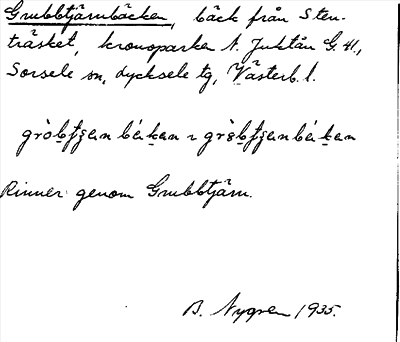 Grubbtjärnbäcken, bäck från Sten-
träsket, kronoparken N. Juktån G. 41.,
Sorsele sn, Lycksele tg, Västerb. l.
Rinner genom Grubbtjärn.
B. Nygren 1935.